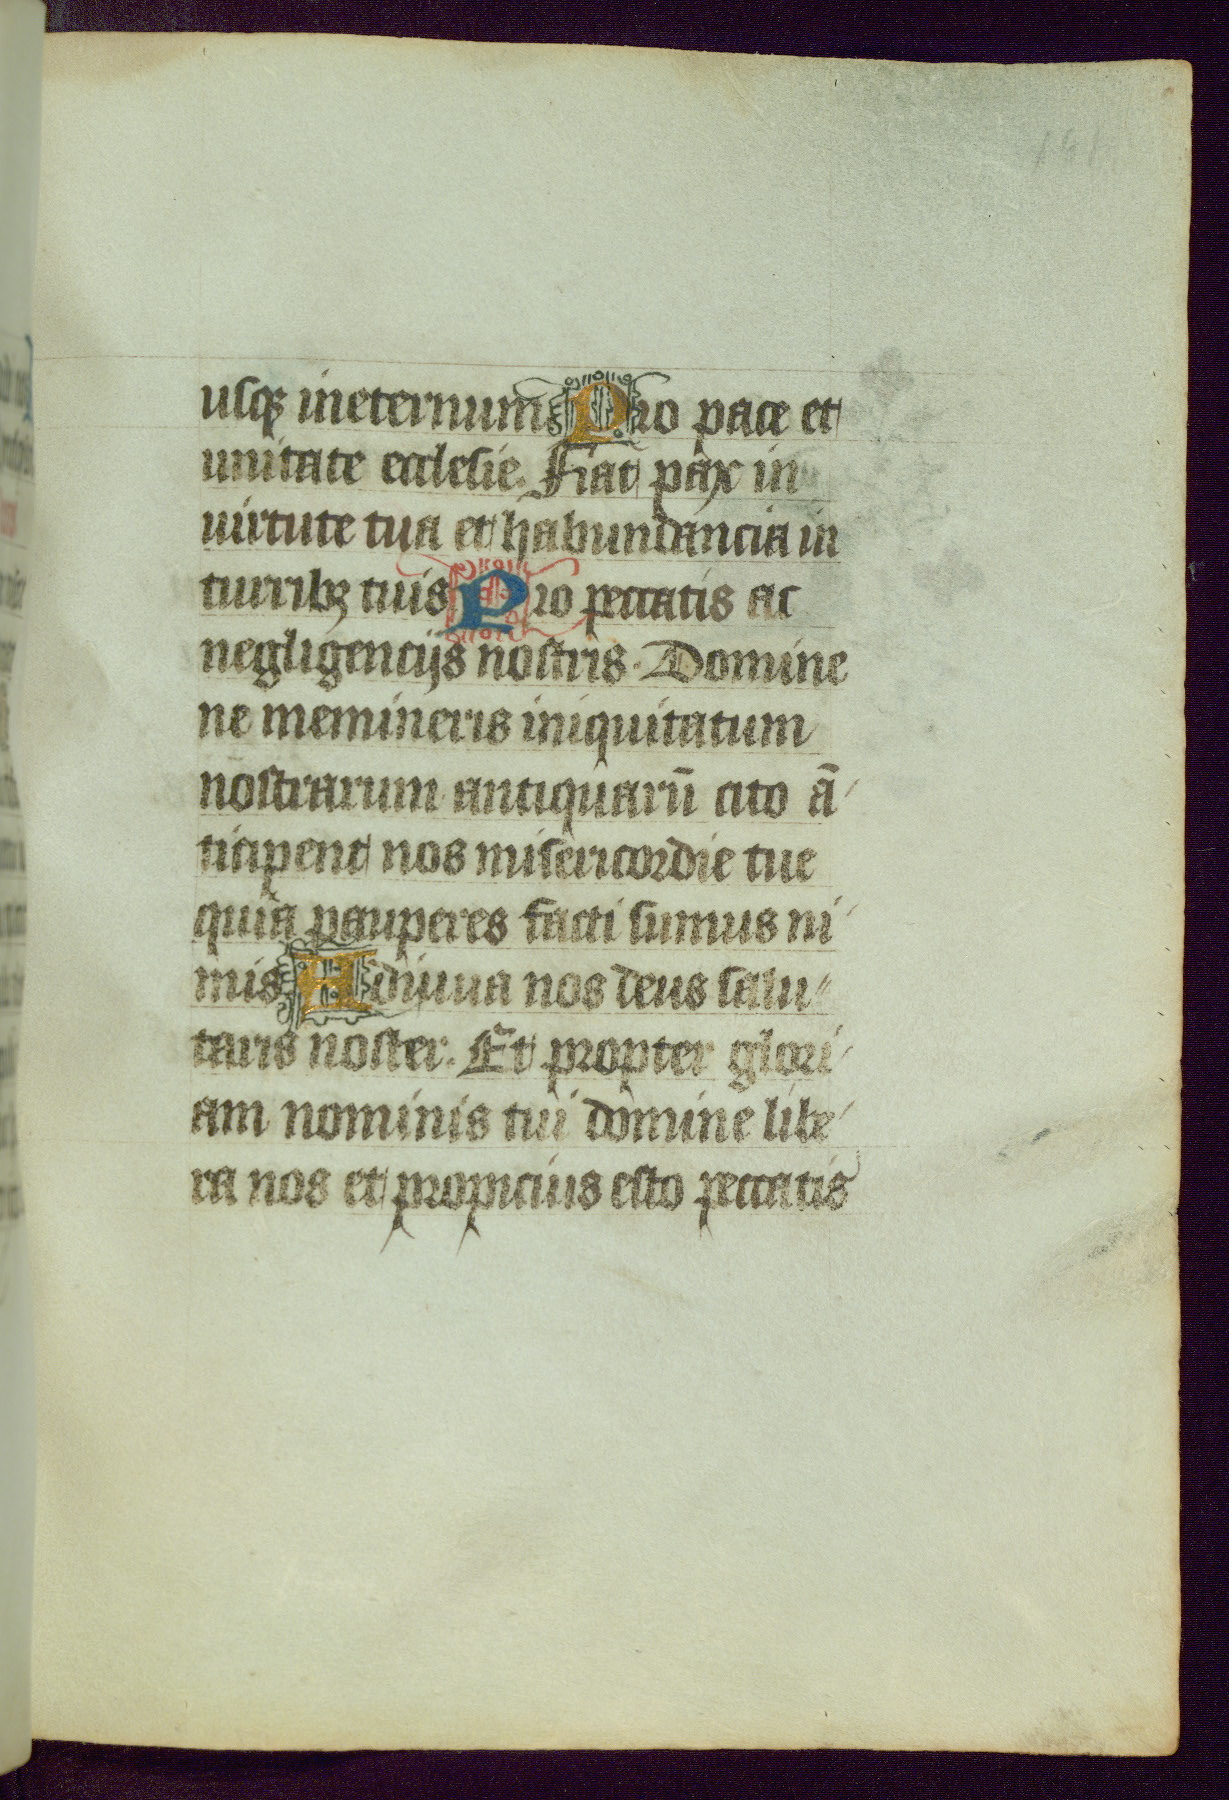 usqꝫ ineternum Pro pace et
unitate ecclesie. Fiat pax in
uirtute tua et habundancia in
turribꝫ tuis Pro peccatis ac
negligencijs nostris. Domine
ne memineris iniquitatum
nostrarum antiquarū cito ā
ticipent nos misericordie tue
quia pauperes facti sumus ni
mis Adiuua nos deus salu
taris noster. Et propter glori
am nominis tui domine libe
ra nos et propicius esto peccatis